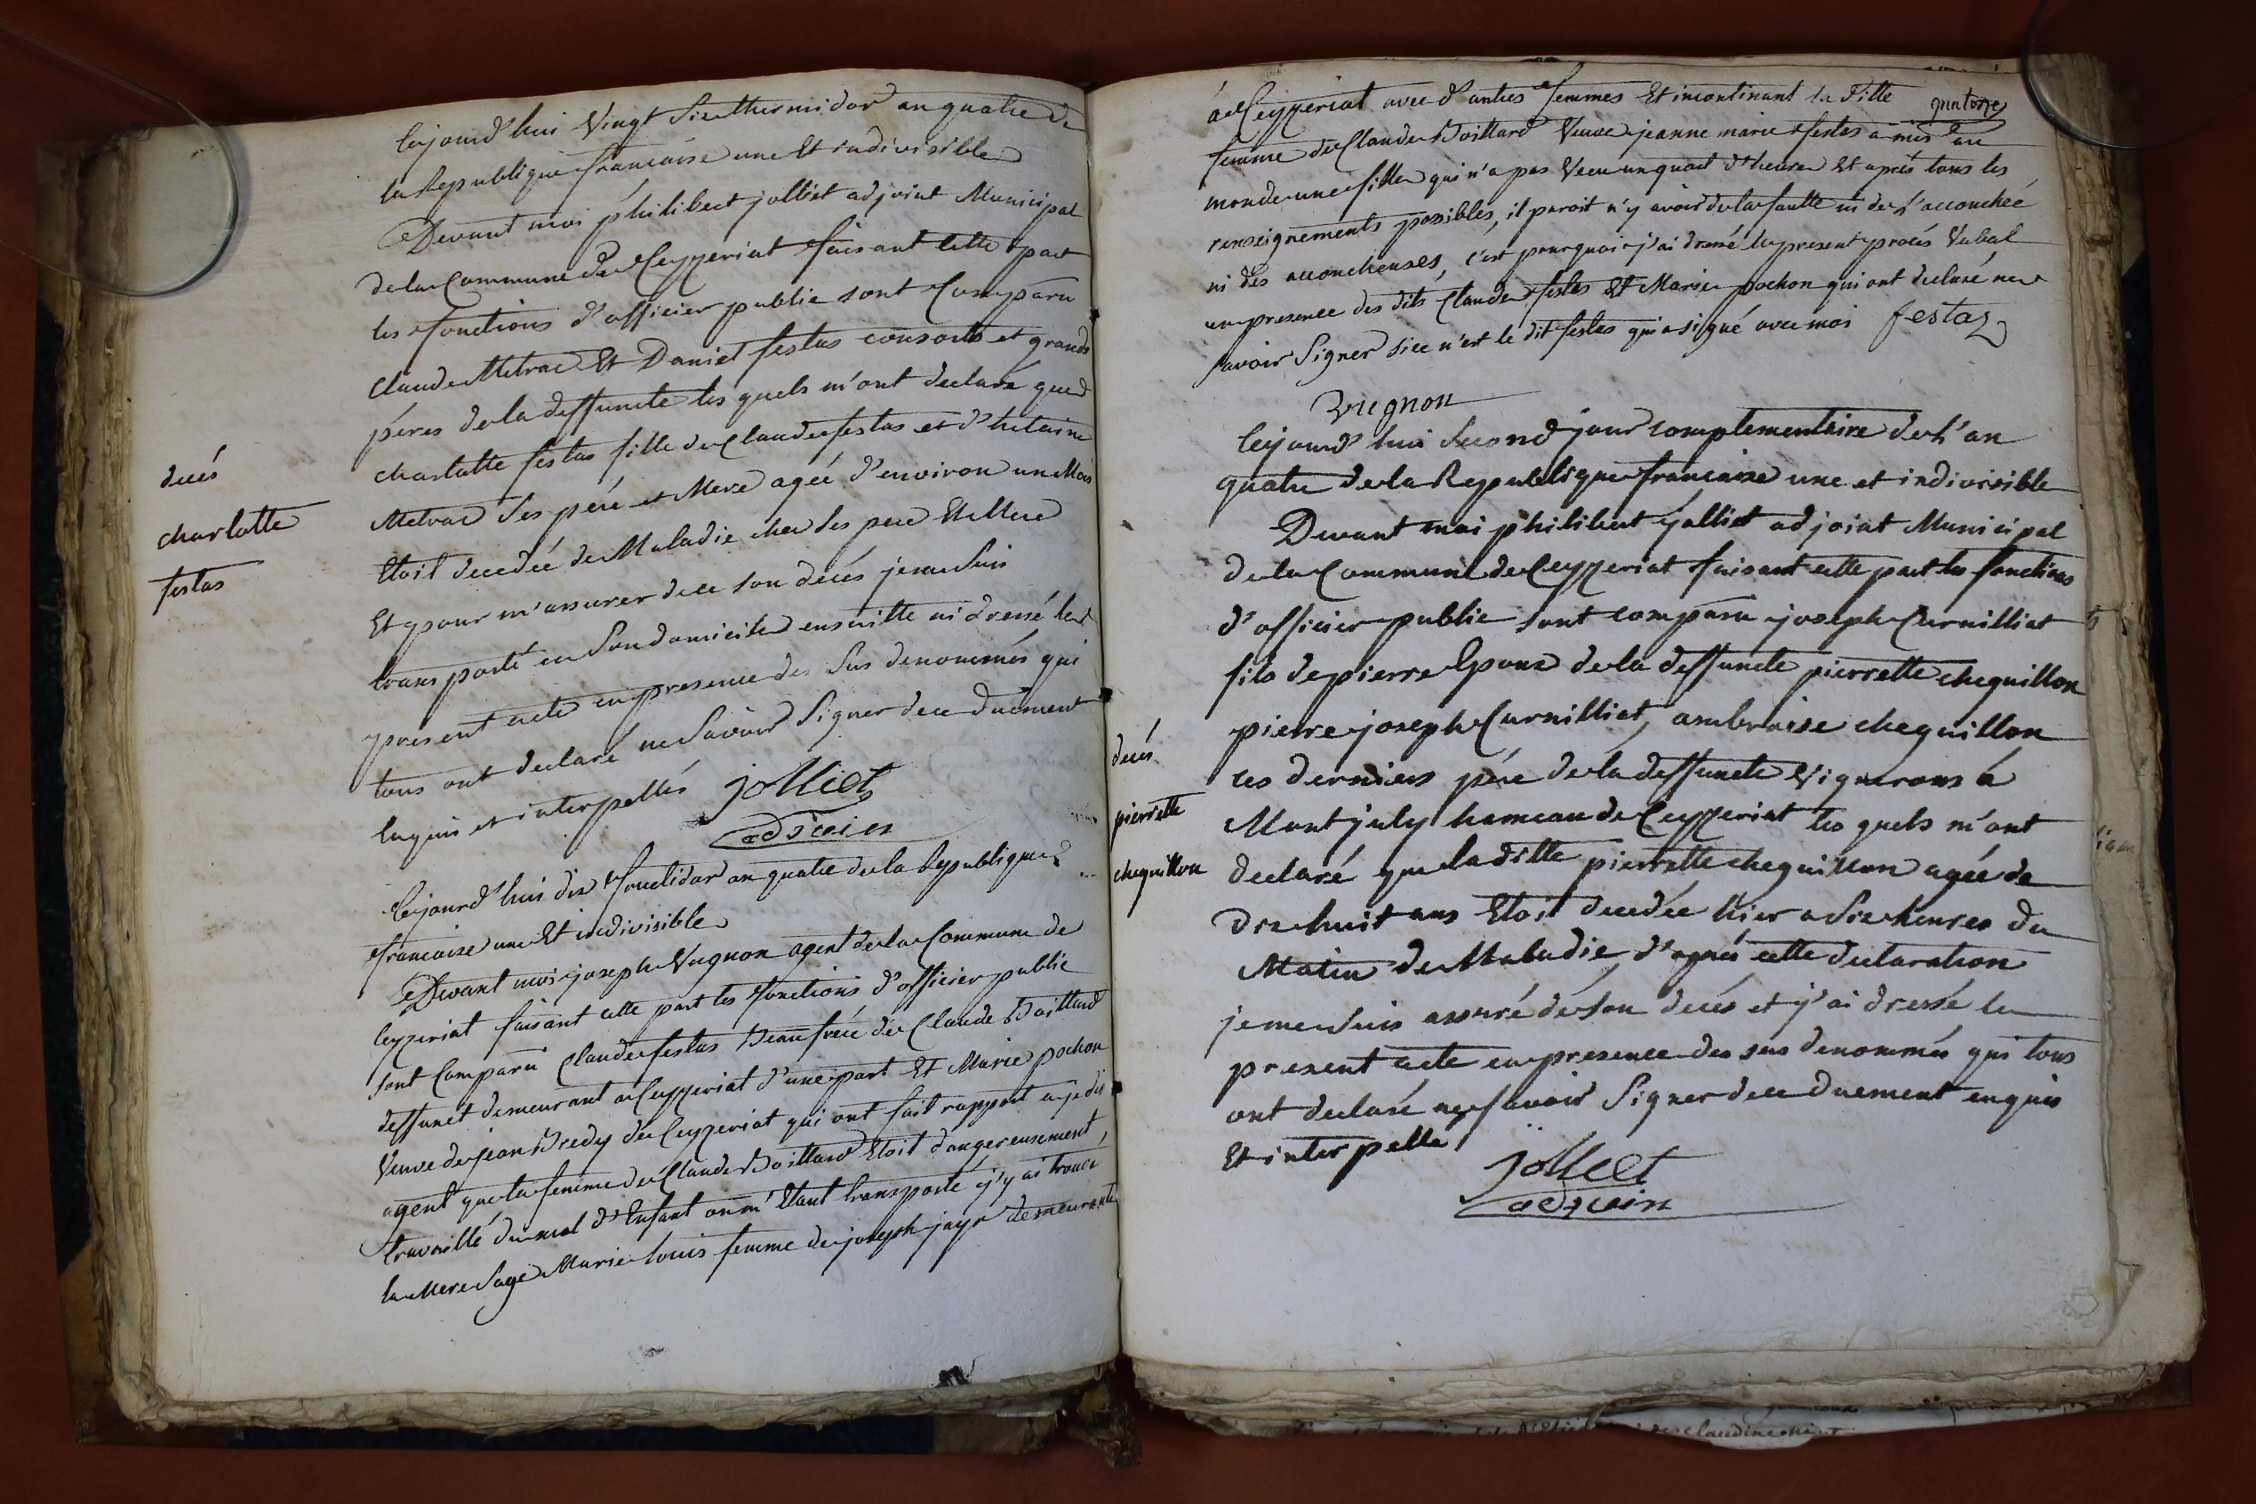 Cejourd'hui Vingt Six thermidor an quatre de
la Republique francaise une Et indivisible
Devant moi philibert jolliet adjoint Municipal
de la Commune de Ceyzeriat faisant cette part
les fonctions d'officier public sont Comparu
Claude Metrac Et Daniel festas consorts et grands
péres de la deffuncte les quels m'ont declaré que
charlotte festas fille de Claude festas et d'helaine
Metrac Ses pére et Mere agée d'environ un Mois
Etoit decedée de Maladie chez Ses pere Et Mere
Et pour m'assurer de ce son decés je me Suis
transporté en Son domicile ensuitte ai dressé le
present acte en presence des Sus denommés qui
tous ont declaré ne Savoir Signer de ce duement
Enquis et interpellés jolliet
adjoin
decés
charlotte
festas
Cejourd'hui dix fructidor an quatre de la Republique
francaise une Et indivisible
Devant moi joseph Vugnon agent de la Commune de
Ceyzeriat faisant cette part les fonctions d'officier public
sont Comparu Claude festas Beaufrére de Claude Boillard
deffunct demeurant a Ceyzeriat d'une part Et Marie pochon
Veuve de jean Bredy de Ceyzeriat qui ont fait rapport a je dis
agent que la femme de Claude Boillard Etoit dangereusement
travaillé du mal d'Enfant ou m'Etant transporté j'y ai trouvé
la Mere Sage Marie Louis femme de joseph jayr demeurante
quatorze
á Ceyzeriat avec d'autres femmes Et incontinant la ditte
femme de Claude Boillard Veuve jeanne marie festas a mis au
monde une fille qui n'a pas Vecu un quart d'heure Et aprés tous les
renseignements possibles, il paroit n'y avoir de la faulte ni de l'accouchée
ni des accoucheuses, c'est pourquoi j'ai dressé le present procés Verbal
en presence des dits Claude festas Et Marie pochon qui ont declaré ne
savoir Signer si ce n'est le dit festas qui a signé avec moi festas
Vugnon
Cejourd'hui Second jour complementaire de l'an
quatre de la Republique francaise une et indivisible
Devant moi philibert jolliet adjoint Municipal
de la Commune de Ceyzeriat faisant cette part les fonctions
d'officier public sont comparu joseph Curnilliat
fils de pierre Epoux de la deffuncte pierrette cheguillon
pierre joseph Curnilliat, ambroise cheguillon
ces derniers pére de la deffuncte Vignerons á
Mont july hameau de Ceyzeriat les quels m'ont
declaré que laditte pierrette cheguillon agée de
dix huit ans Etoit decedée hier a Six heures du
Matin de Maladie, d'aprés cette declaration
je me Suis assuré de son decés et j'ai dressé le
present acte en presence des sus denommés qui tous
ont declaré ne Savoir Signer de ce duement enquis
Et interpellé
jolliet
adjoin
decés
pierrette
cheguillon